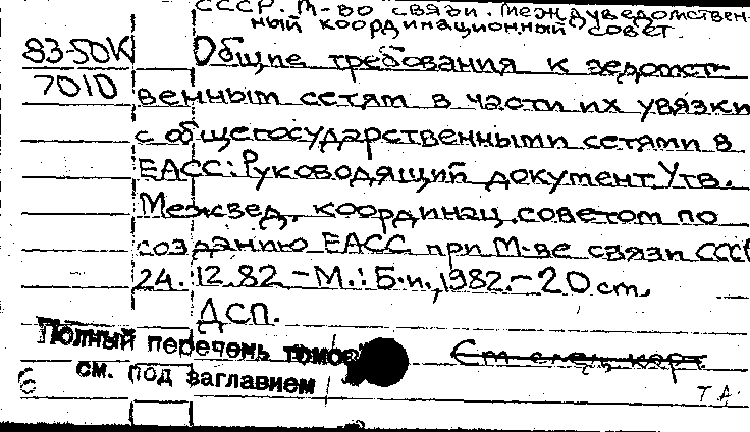 СССР. М-во связи. Междуведомствен-
ный координационный совет
83-50К Общие требования к ведомст-
7010 венным сетям в части их увязки
с общегосударственными сетями в
ЕАСС: Руководящий документ. Утв.
Межвед. координац. советом по
созданию ЕАСС при М-ве связи СССР
24.12.82 - М.: Б.и., 1982. - 20 см.
ДСП.
Полный перечень томов
см. под заглавием
См след карт
6
Т.А.